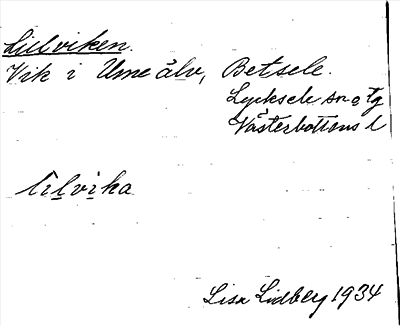 Lillviken.
Vik i Ume älv, Betsele.
Lycksele sn o tg
Västerbottens l
lilvika
Lisa Lidberg 1934